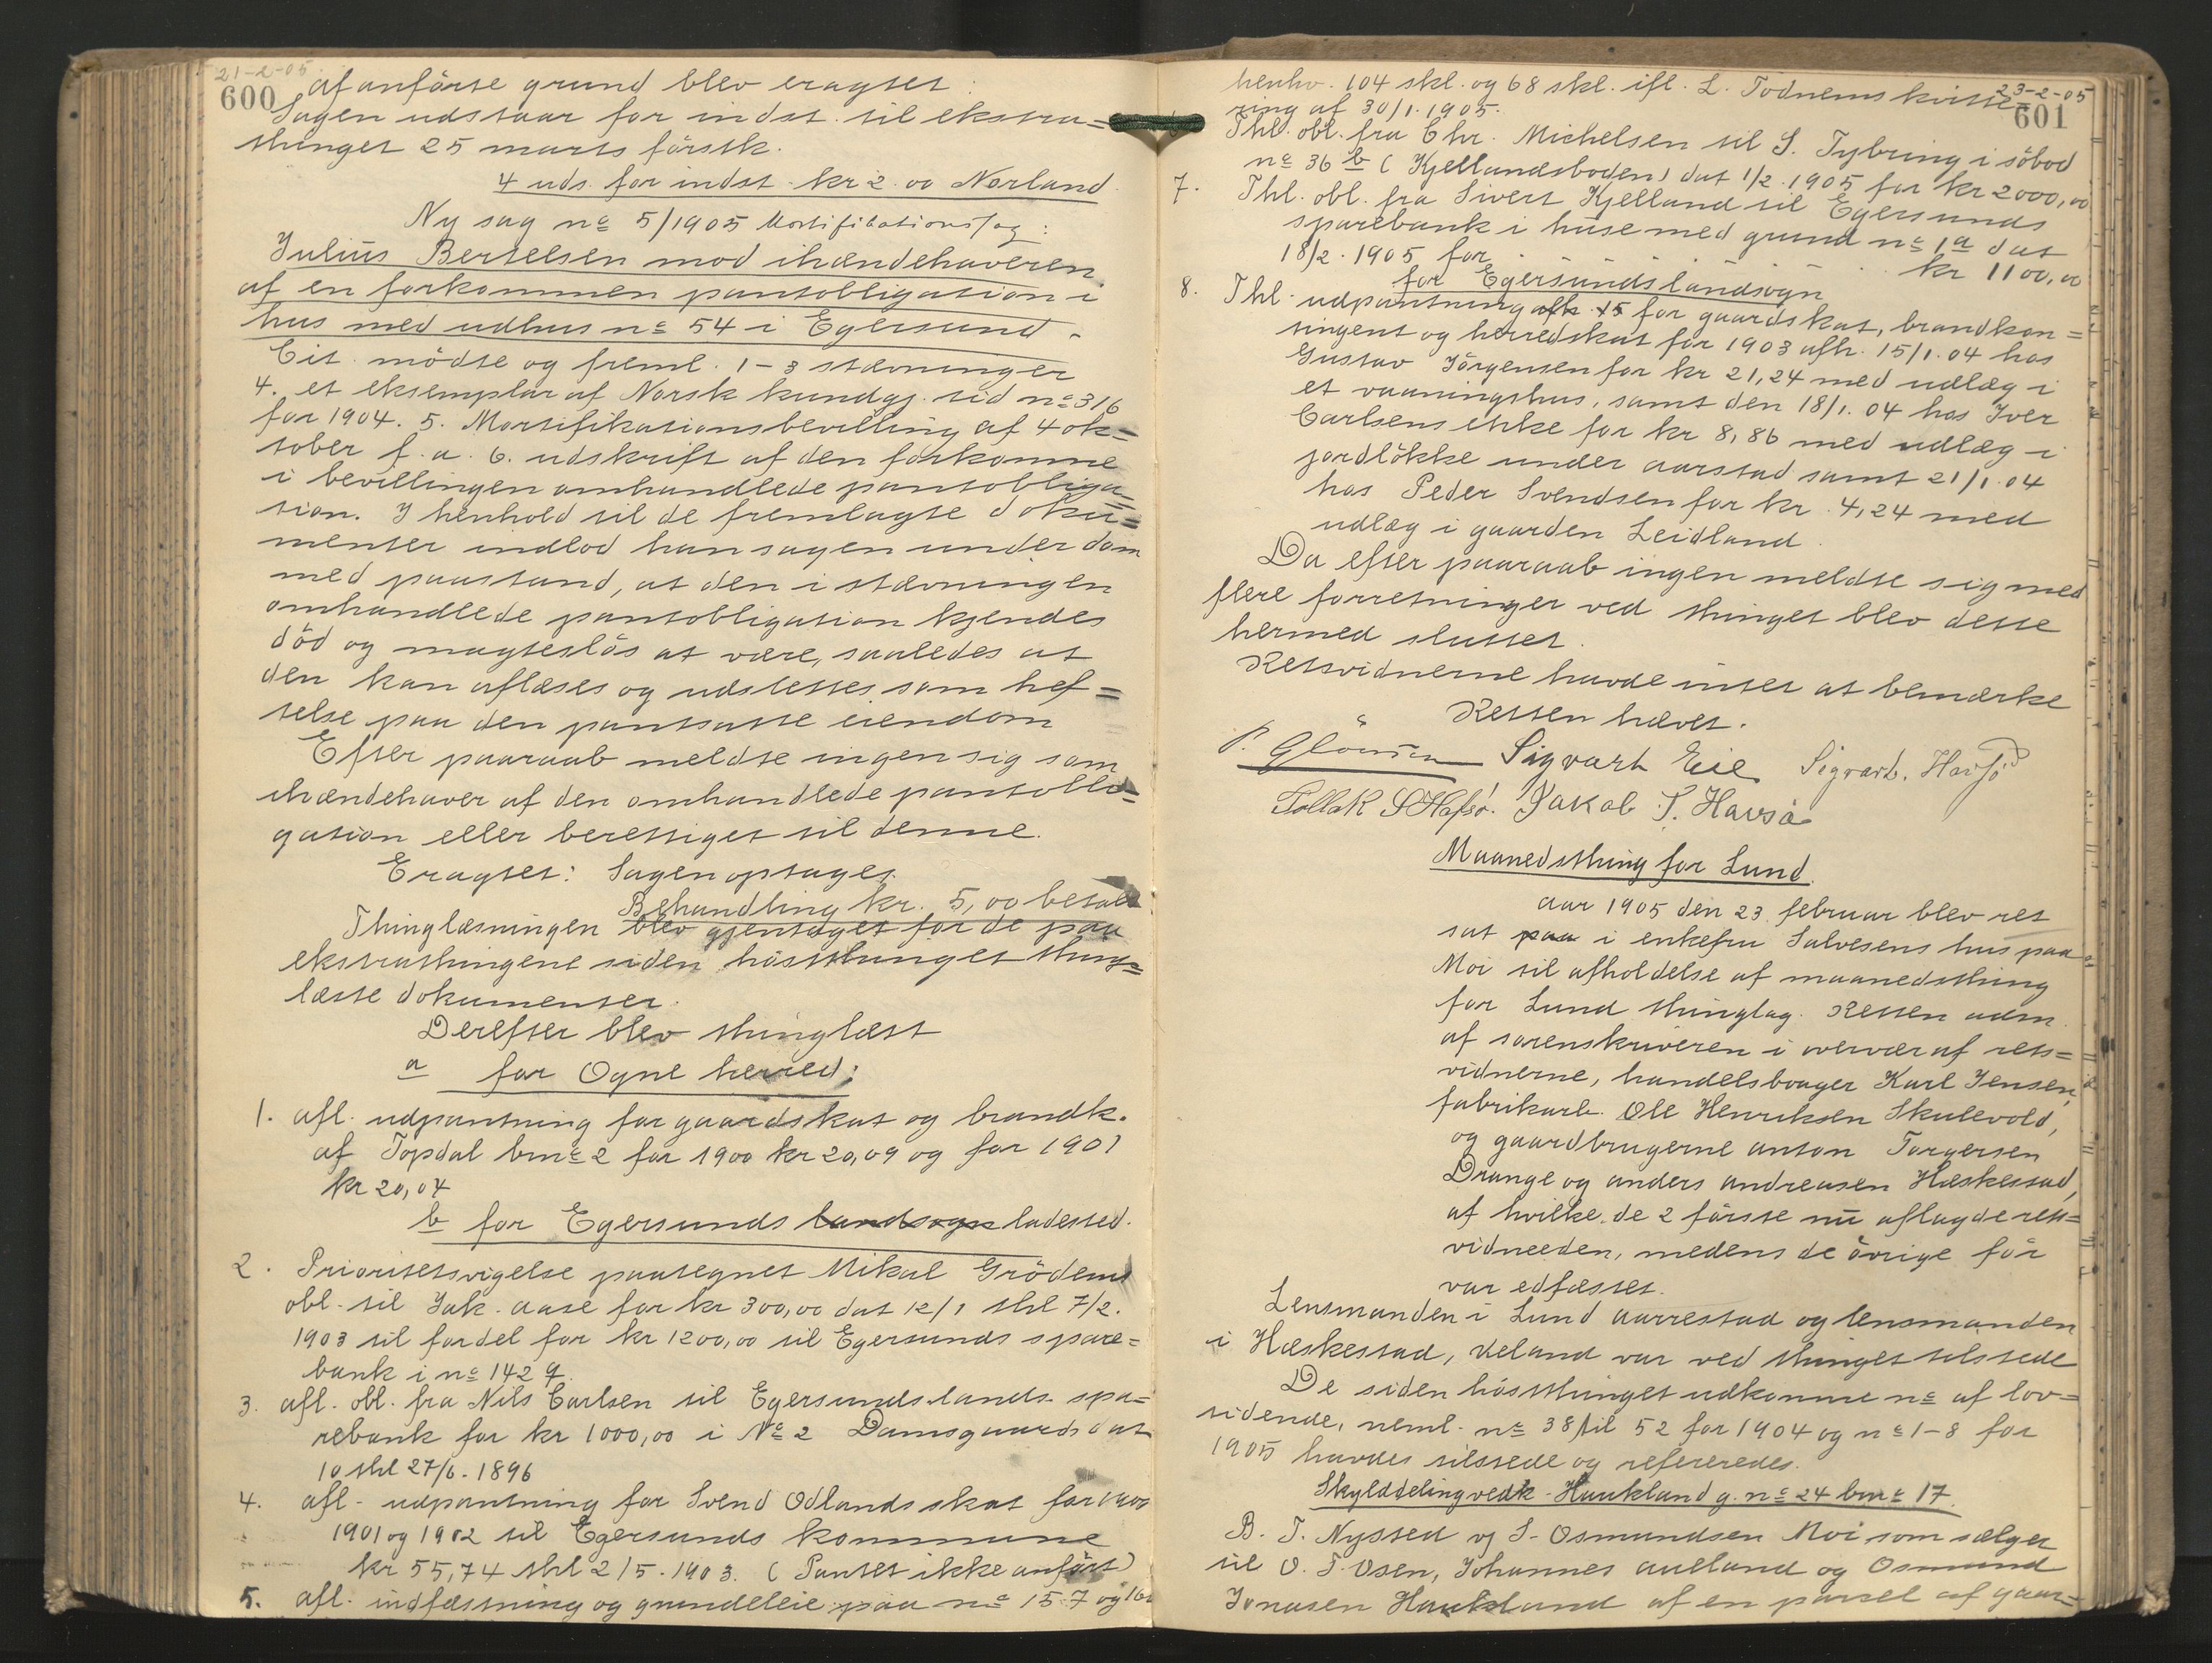 21-2-05
600
af anförte grund blev eragtet:
Sagen udstaar for indst. til ekstra=
thinget 25 marts förstk.
4 uds. for indst. kr 2.00 Norland.
Ny sag no 5/1905 Mortifikationssag:
Julius Bertelsen mod ihændehaveren
af en forkommen pantobligation i
hus med udhus no 54 i Egersund.
Cit. mödte og freml. 1-3 stævninger
4. et eksemplar af Norsk kundgj. tid no 316
for 1904. 5. Mortifikationsbevilling af 4 ok=
tober f.a. 6. udskrift af den forkomne
i bevillingen omhandlede pantobliga=
tion. I henhold til de fremlagte doku=
menter indlod han sagen under dom
med paastand, at den i stævningen
omhandlede pantobligation kjendes
död og magteslös at være, saaledes at
den kan aflæses og udslettes som hef=
telse paa den pantsatte eiendom
Efter paaraab meldte ingen sig som
ihændehaver af den omhandlede pantobli=
gation eller berettiget til denne.
Eragtet: Sagen optages.
Behandling kr. 5,00 betalt
Thinglæsningen blev gjentaget for de paa
ekstrathingene siden höstthinget thing=
læste dokumenter.
Derefter blev thinglæst
a for Ogne herred:
1. afl. udpantning for gaardskat og brandk.
af Topdal bno 2 for 1900 kr 20,09 og for 1901
kr 20,04
b for Egersunds landsogn ladested.
2. Prioritetsvigelse paategnet Mikal Grödems
obl. til Jak. Aase for kr 300,00 dat 12/1 thl 7/2.
1903 til fordel for kr 1200,00 til Egersunds spare=
bank i no 142 q
3. afl. obl. fra Nils Carlsen til Egersunds lands spa=
rebank for kr 1000,00 i No 2 Damsgaards dat
10 thl 27/6. 1896
4. afl. udpantning for Svend Odlands skat for 1900
1901 og 1902 til Egersunds kommune
kr 55,74 thl 2/5. 1903. (Pantet ikke anfört)
5. afl. indfæstning og grundleie paa no 157 og 160
23-2-05
601
henhv. 104 skl. og 68 skl. ifl. L. Tödnems kvitte=
ring af 30/1. 1905.
6 Thl. obl. fra Chr. Michelsen til S. Tybring i söbod
no 36 b (Kjellandsboden) dat 1/2. 1905 for kr 2000,00
7. Thl. obl. fra Sivert Kjelland til Egersunds
sparebank i huse med grund no 1a dat
18/2. 1905 for kr 1100,00
for Egersunds landsogn
8. Thl. udpantning afh. 15 for gaardskat, brandkon=
tingent og herredskat for 1903 afh. 15/1. 04 hos
Gustav Jörgensen for kr 21,24 med udlæg i
et vaaningshus, samt den 18/1. 04 hos Iver
Carlsens enke for kr 8,86 med udlæg i
jordlökke under Aarstad samt 21/1. 04
hos Peder Svendsen for kr. 4,24 med
udlæg i gaarden Leidland.
Da efter paaraab ingen meldte sig med
flere forretninger ved thinget blev dette
hermed sluttet.
Retsvidnerne havde intet at bemærke
Retten hævet.
Sigvart Eie Sigvart. Hafsö
Tollak S Hafsö. Jakob T. Havsö
Maanedsthing for Lund.
Aar 1905 den 23. februar blev ret
sat paa i enkefru Salvesens hus paa
Moi til afholdelse af maanedsthing
for Lund thinglag. Retten adm.
af sorenskriveren i overvær af rets=
vidnerne, handelsbruger Karl Jensen,
fabrikarb. Ole Henriksen Skulevold,
og gaardbrugerne Anton Torgersen
Drange og Anders Andreasen Hæskestad,
af hvilke de 2 förste nu aflagde rets=
vidneeden, medens de övrige för
var edfæstet.
Lensmanden i Lund Aarrestad og lensmanden
i Hæskestad, Ueland var ved thinget tilstede
De siden höstthinget udkomne no af lov=
tidende, neml. no 38 til 52 for 1904 og no 1-8 for
1905 havdes tilstede og refereredes.
Skylddeling vedk. Haukland g. no 24 bno 17.
B. T. Nysted og S. Osmundsen Moi som sælger
til O. T. Osen, Johannes Aulland og Osmund
Jonasen Haukland af en parsel af gaar=